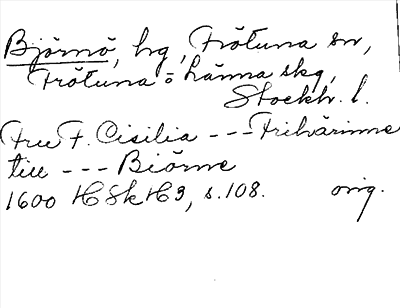 Björnö, hg, Frötuna sn,
Frötuna o Länna skg,
Stockh. l.
Fru F. Cisilia --- Friherinne
till --- Biörne
1600 HSkH 9, s. 108. orig.